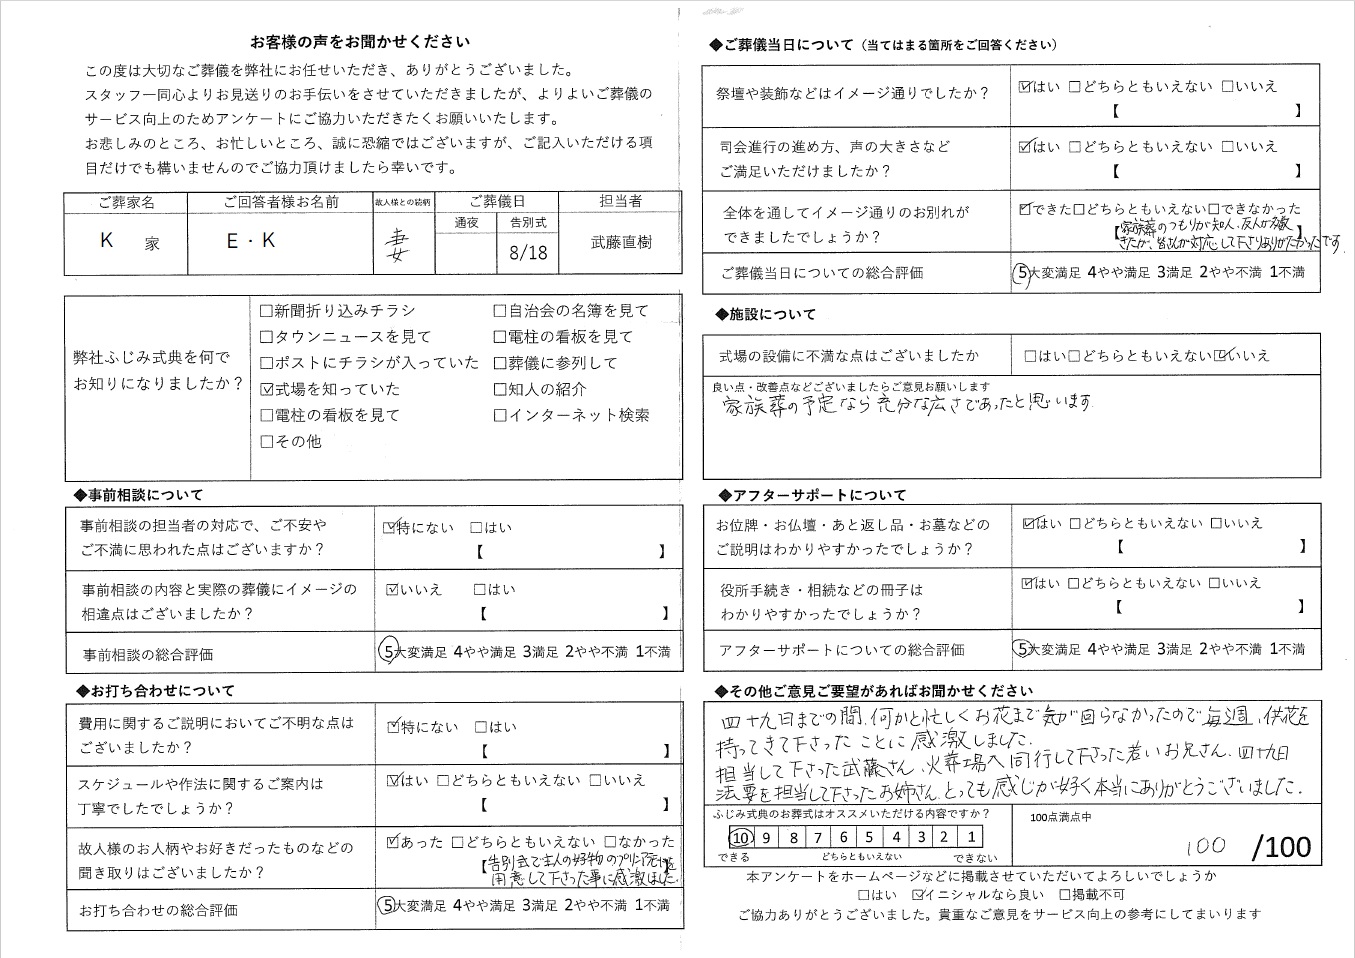 お客様の声をお聞かせください
この度は大切なご葬儀を弊社にお任せいただき、ありがとうございました。
スタッフ一同心よりお見送りのお手伝いをさせていただきましたが、よりよいご葬儀の
サービス向上のためアンケートにご協力いただきたくお願いいたします。
お悲しみのところ、お忙しいところ、誠に恐縮ではございますが、ご記入いただける項
目だけでも構いませんのでご協力頂けましたら幸いです。
ご葬家名 ご回答者様お名前 故人様との続柄 ご葬儀日 担当者
通夜 告別式
K 家 E・K 妻 8/18 武藤直樹
弊社ふじみ式典を何で
お知りになりましたか?
☐新聞折り込みチラシ ☐自治会の名簿を見て
☐タウンニュースを見て ☐電柱の看板を見て
☐ポストにチラシが入っていた ☐葬儀に参列して
☑式場を知っていた ☐知人の紹介
☐電柱の看板を見て ☐インターネット検索
☐その他
◆事前相談について
事前相談の担当者の対応で、ご不安や
ご不満に思われた点はございますか?
☑特にない ☐はい
【 】
事前相談の内容と実際の葬儀にイメージの
相違点はございましたか?
☑いいえ ☐はい
【 】
事前相談の総合評価 5大変満足 4やや満足 3満足 2やや不満 1不満
◆お打ち合わせについて
費用に関するご説明においてご不明な点は
ございましたか?
☑特にない ☐はい
【 】
スケジュールや作法に関するご案内は
丁寧でしたでしょうか?
☑はい ☐どちらともいえない ☐いいえ
【 】
故人様のお人柄やお好きだったものなどの
聞き取りはございましたか?
☑あった ☐どちらともいえない ☐なかった
【告別式で主人の好物のプリン
用意して下さった事に感激しました】
お打ち合わせの総合評価 5大変満足 4やや満足 3満足 2やや不満 1不満
◆ご葬儀当日について（当てはまる箇所をご回答ください）
祭壇や装飾などはイメージ通りでしたか?
☑はい ☐どちらともいえない ☐いいえ
【 】
司会進行の進め方、声の大きさなど
ご満足いただけましたか?
☑はい ☐どちらともいえない ☐いいえ
【 】
全体を通してイメージ通りのお別れが
できましたでしょうか?
☑できた☐どちらともいえない☐できなかった
【家族葬のつもりが知人、友人が
きたが、皆さんが対応して下さりありがたかったです】
ご葬儀当日についての総合評価 5大変満足 4やや満足 3満足 2やや不満 1不満
◆施設について
式場の設備に不満な点はございましたか ☐はい☐どちらともいえない☑いいえ
良い点・改善点などございましたらご意見お願いします
家族葬の予定なら充分な広さであったと思います.
◆アフターサポートについて
お位牌・お仏壇・あと返し品・お墓などの
ご説明はわかりやすかったでしょうか?
☑はい ☐どちらともいえない ☐いいえ
【 】
役所手続き・相続などの冊子は
わかりやすかったでしょうか?
☑はい ☐どちらともいえない ☐いいえ
【 】
アフターサポートについての総合評価 5大変満足 4やや満足 3満足 2やや不満 1不満
◆その他ご意見ご要望があればお聞かせください
四十九日までの間、何かと忙しくお花まで気が回らなかったので毎週、供花を
持ってきて下さったことに感激しました.
担当して下さった武藤さん、火葬場へ同行して下さった若いお兄さん、四十九日
法要を担当して下さったお姉さん、とっても感じが好く本当にありがとうございました.
ふじみ式典のお葬式はオススメいただける内容ですか?
10 9 8 7 6 5 4 3 2 1
できる どちらともいえない できない
100点満点中
100 /100
本アンケートをホームページなどに掲載させていただいてよろしいでしょうか
☐はい ☑イニシャルなら良い ☐掲載不可
ご協力ありがとうございました。貴重なご意見をサービス向上の参考にしてまいります